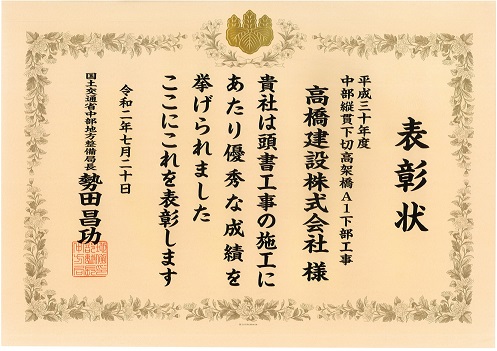 表彰状
平成三十年度
中部縦貫下切高架橋A1下部工事
高橋建設株式会社 様
貴社は頭書工事の施工に
あたり優秀な成績を
挙げられました
ここにこれを表彰します
令和二年七月二十日
国土交通省中部地方整備局長 勢田昌功